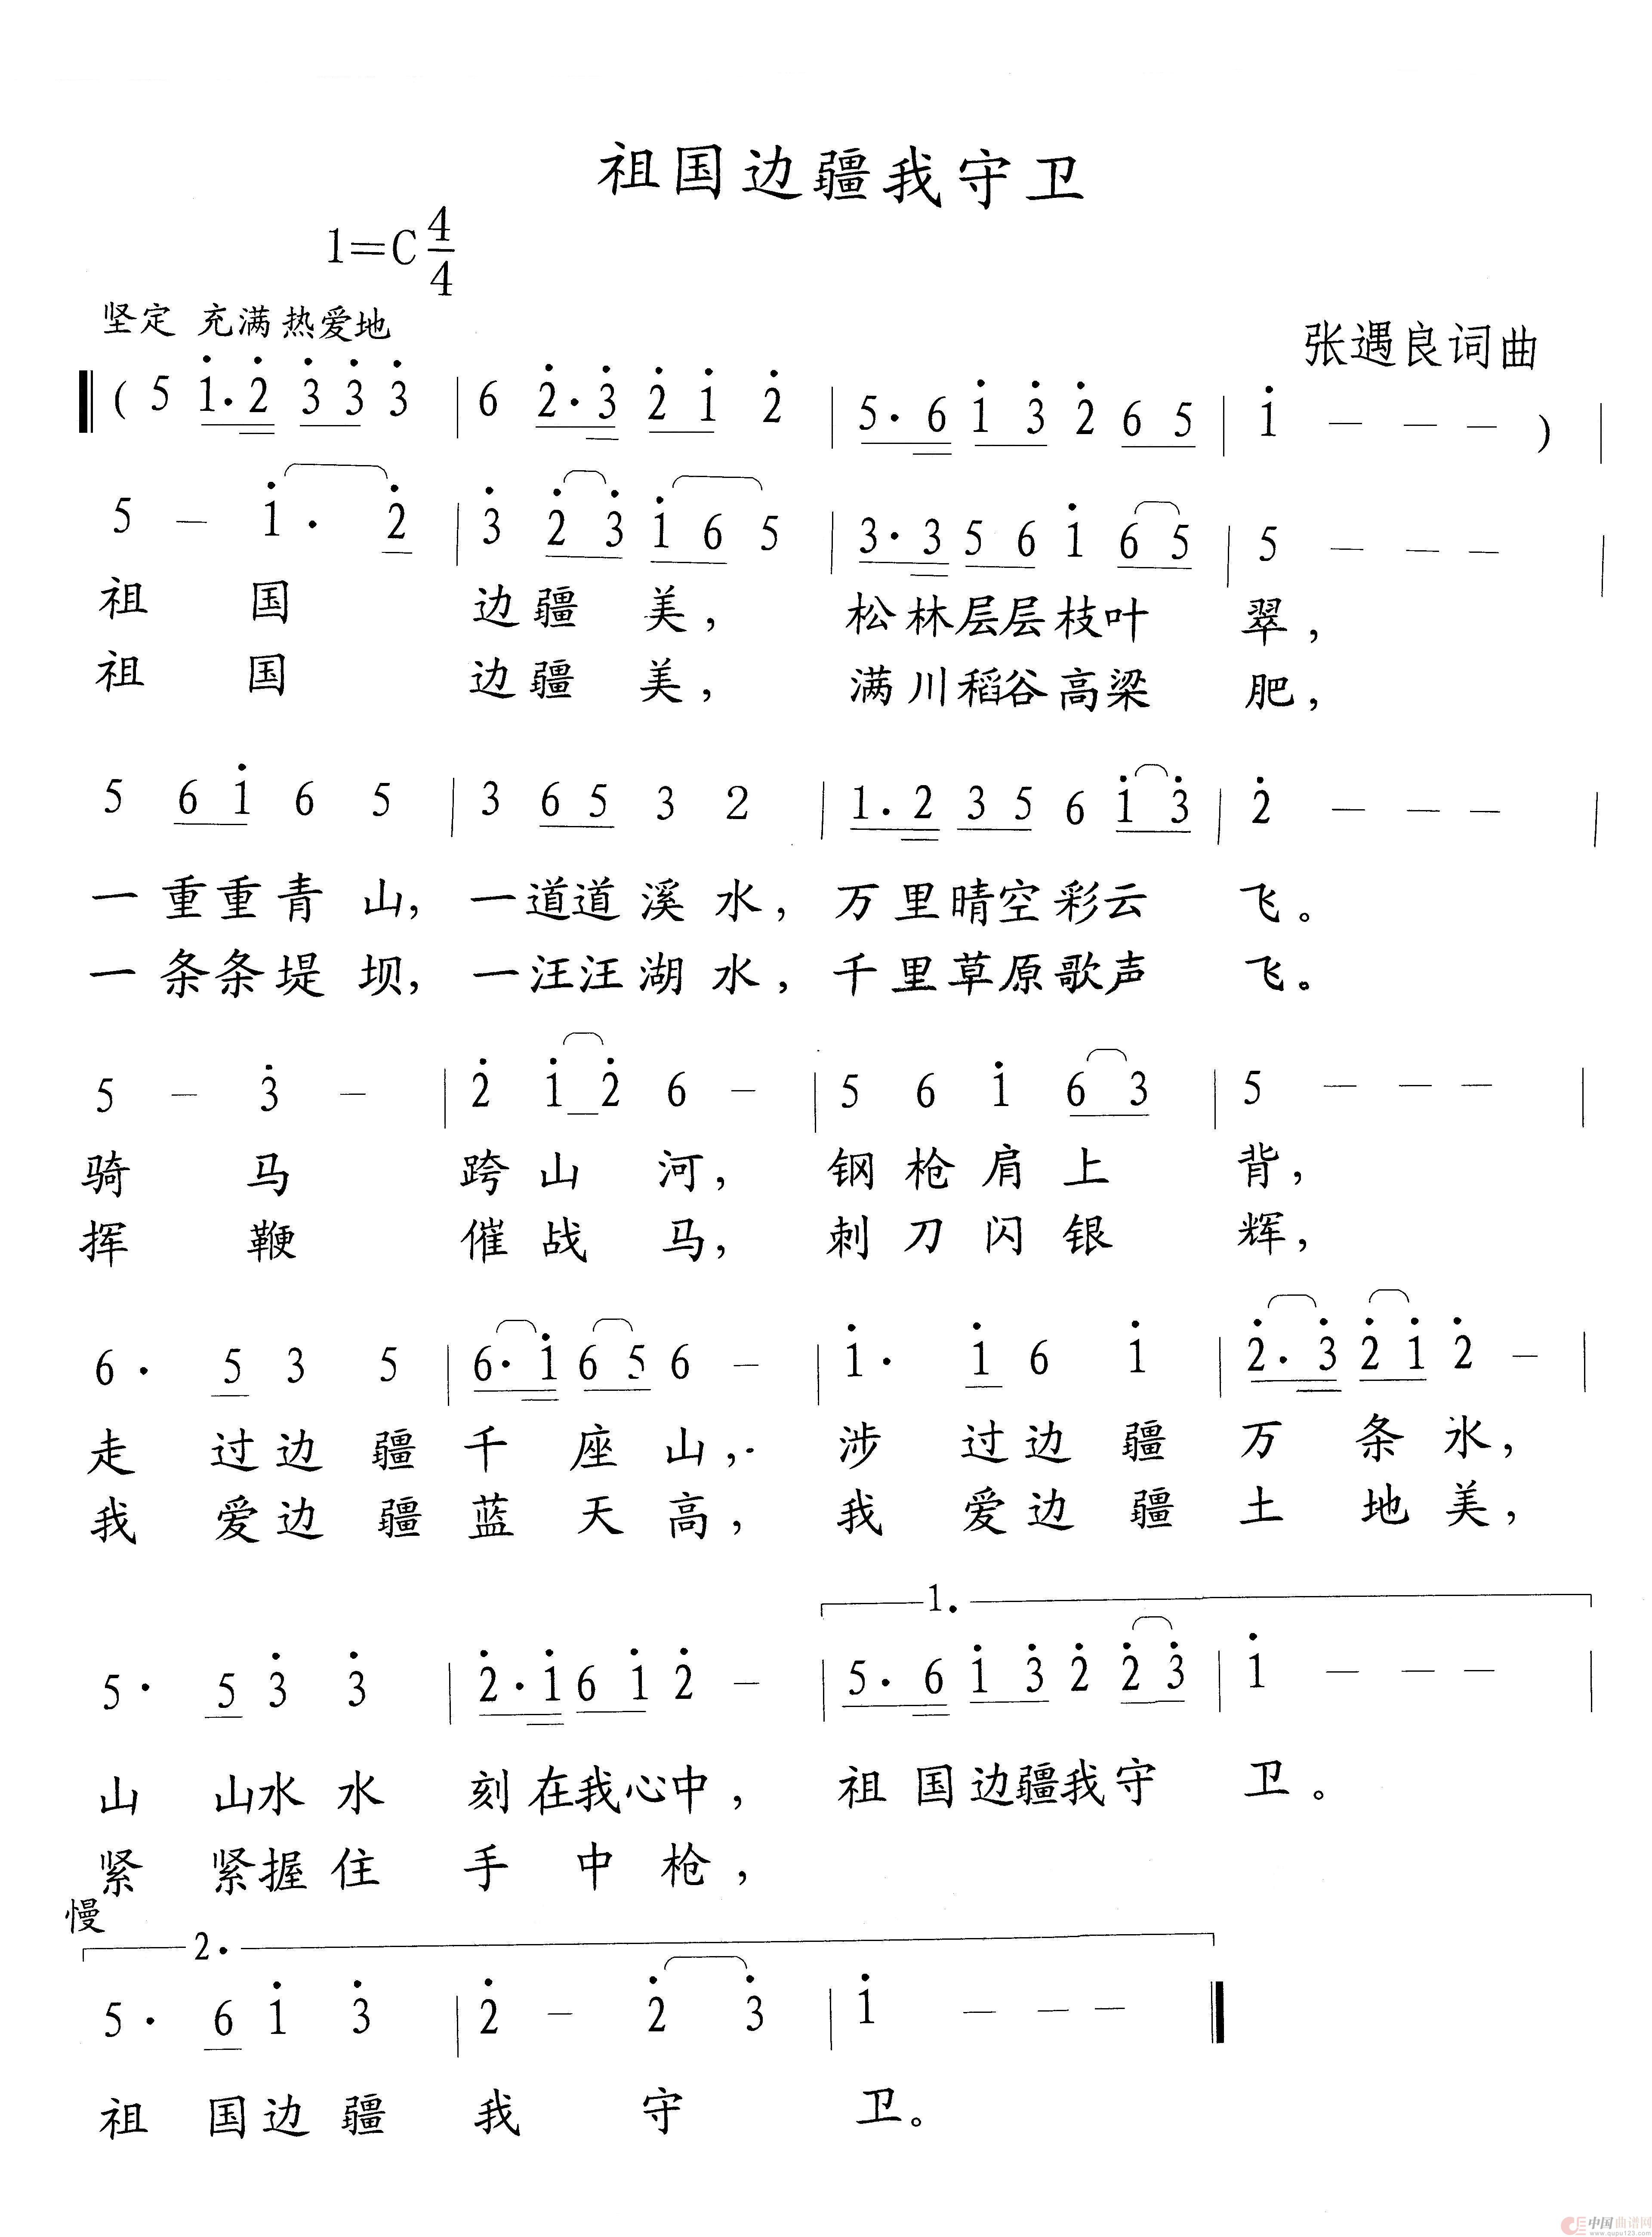 祖国边疆我守卫
1=C 4/4
坚定 充满热爱地
张遇良词曲
( 5 1̇·2̇ 3̇ 3̇ 3̇ | 6 2̇·3̇ 2̇ 1̇ 2̇ | 5·6 1̇ 3̇ 2̇ 6 5 | 1̇ — — — ) |
5 — 1̇· 2̇ | 3̇ 2̇ 3̇ 1̇ 6 5 | 3·3 5 6 1̇ 6 5 | 5 — — — |
祖 国 边疆 美, 松林层层枝叶 翠,
祖 国 边疆 美, 满川稻谷高梁 肥,
5 6 1̇ 6 5 | 3 6 5 3 2 | 1·2 3 5 6 1̇ 3̇ | 2̇ — — — |
一重重青山, 一道道溪水, 万里晴空彩云 飞。
一条条堤坝, 一汪汪湖水, 千里草原歌声 飞。
5 — 3̇ — | 2̇ 1̇ 2̇ 6 — | 5 6 1̇ 6 3 | 5 — — — |
骑 马 跨山河, 钢枪肩上 背,
挥 鞭 催战马, 刺刀闪银 辉,
6· 5 3 5 | 6·1̇ 6 5 6 — | 1̇· 1̇ 6 1̇ | 2̇·3̇ 2̇ 1̇ 2̇ — |
走 过边疆千座山, 涉 过边疆万条水,
我 爱边疆蓝天高, 我 爱边疆土地美,
1.
5· 5 3̇ 3̇ | 2̇·1̇ 6 1̇ 2̇ — | 5·6 1̇ 3̇ 2̇ 2̇ 3̇ | 1̇ — — — |
山 山水水 刻在我心中, 祖国边疆我守 卫。
紧 紧握住 手中枪,
慢
2.
5· 6 1̇ 3̇ | 2̇ — 2̇ 3̇ | 1̇ — — —
祖 国边疆 我 守 卫。
中国曲谱网
www.qupu123.com